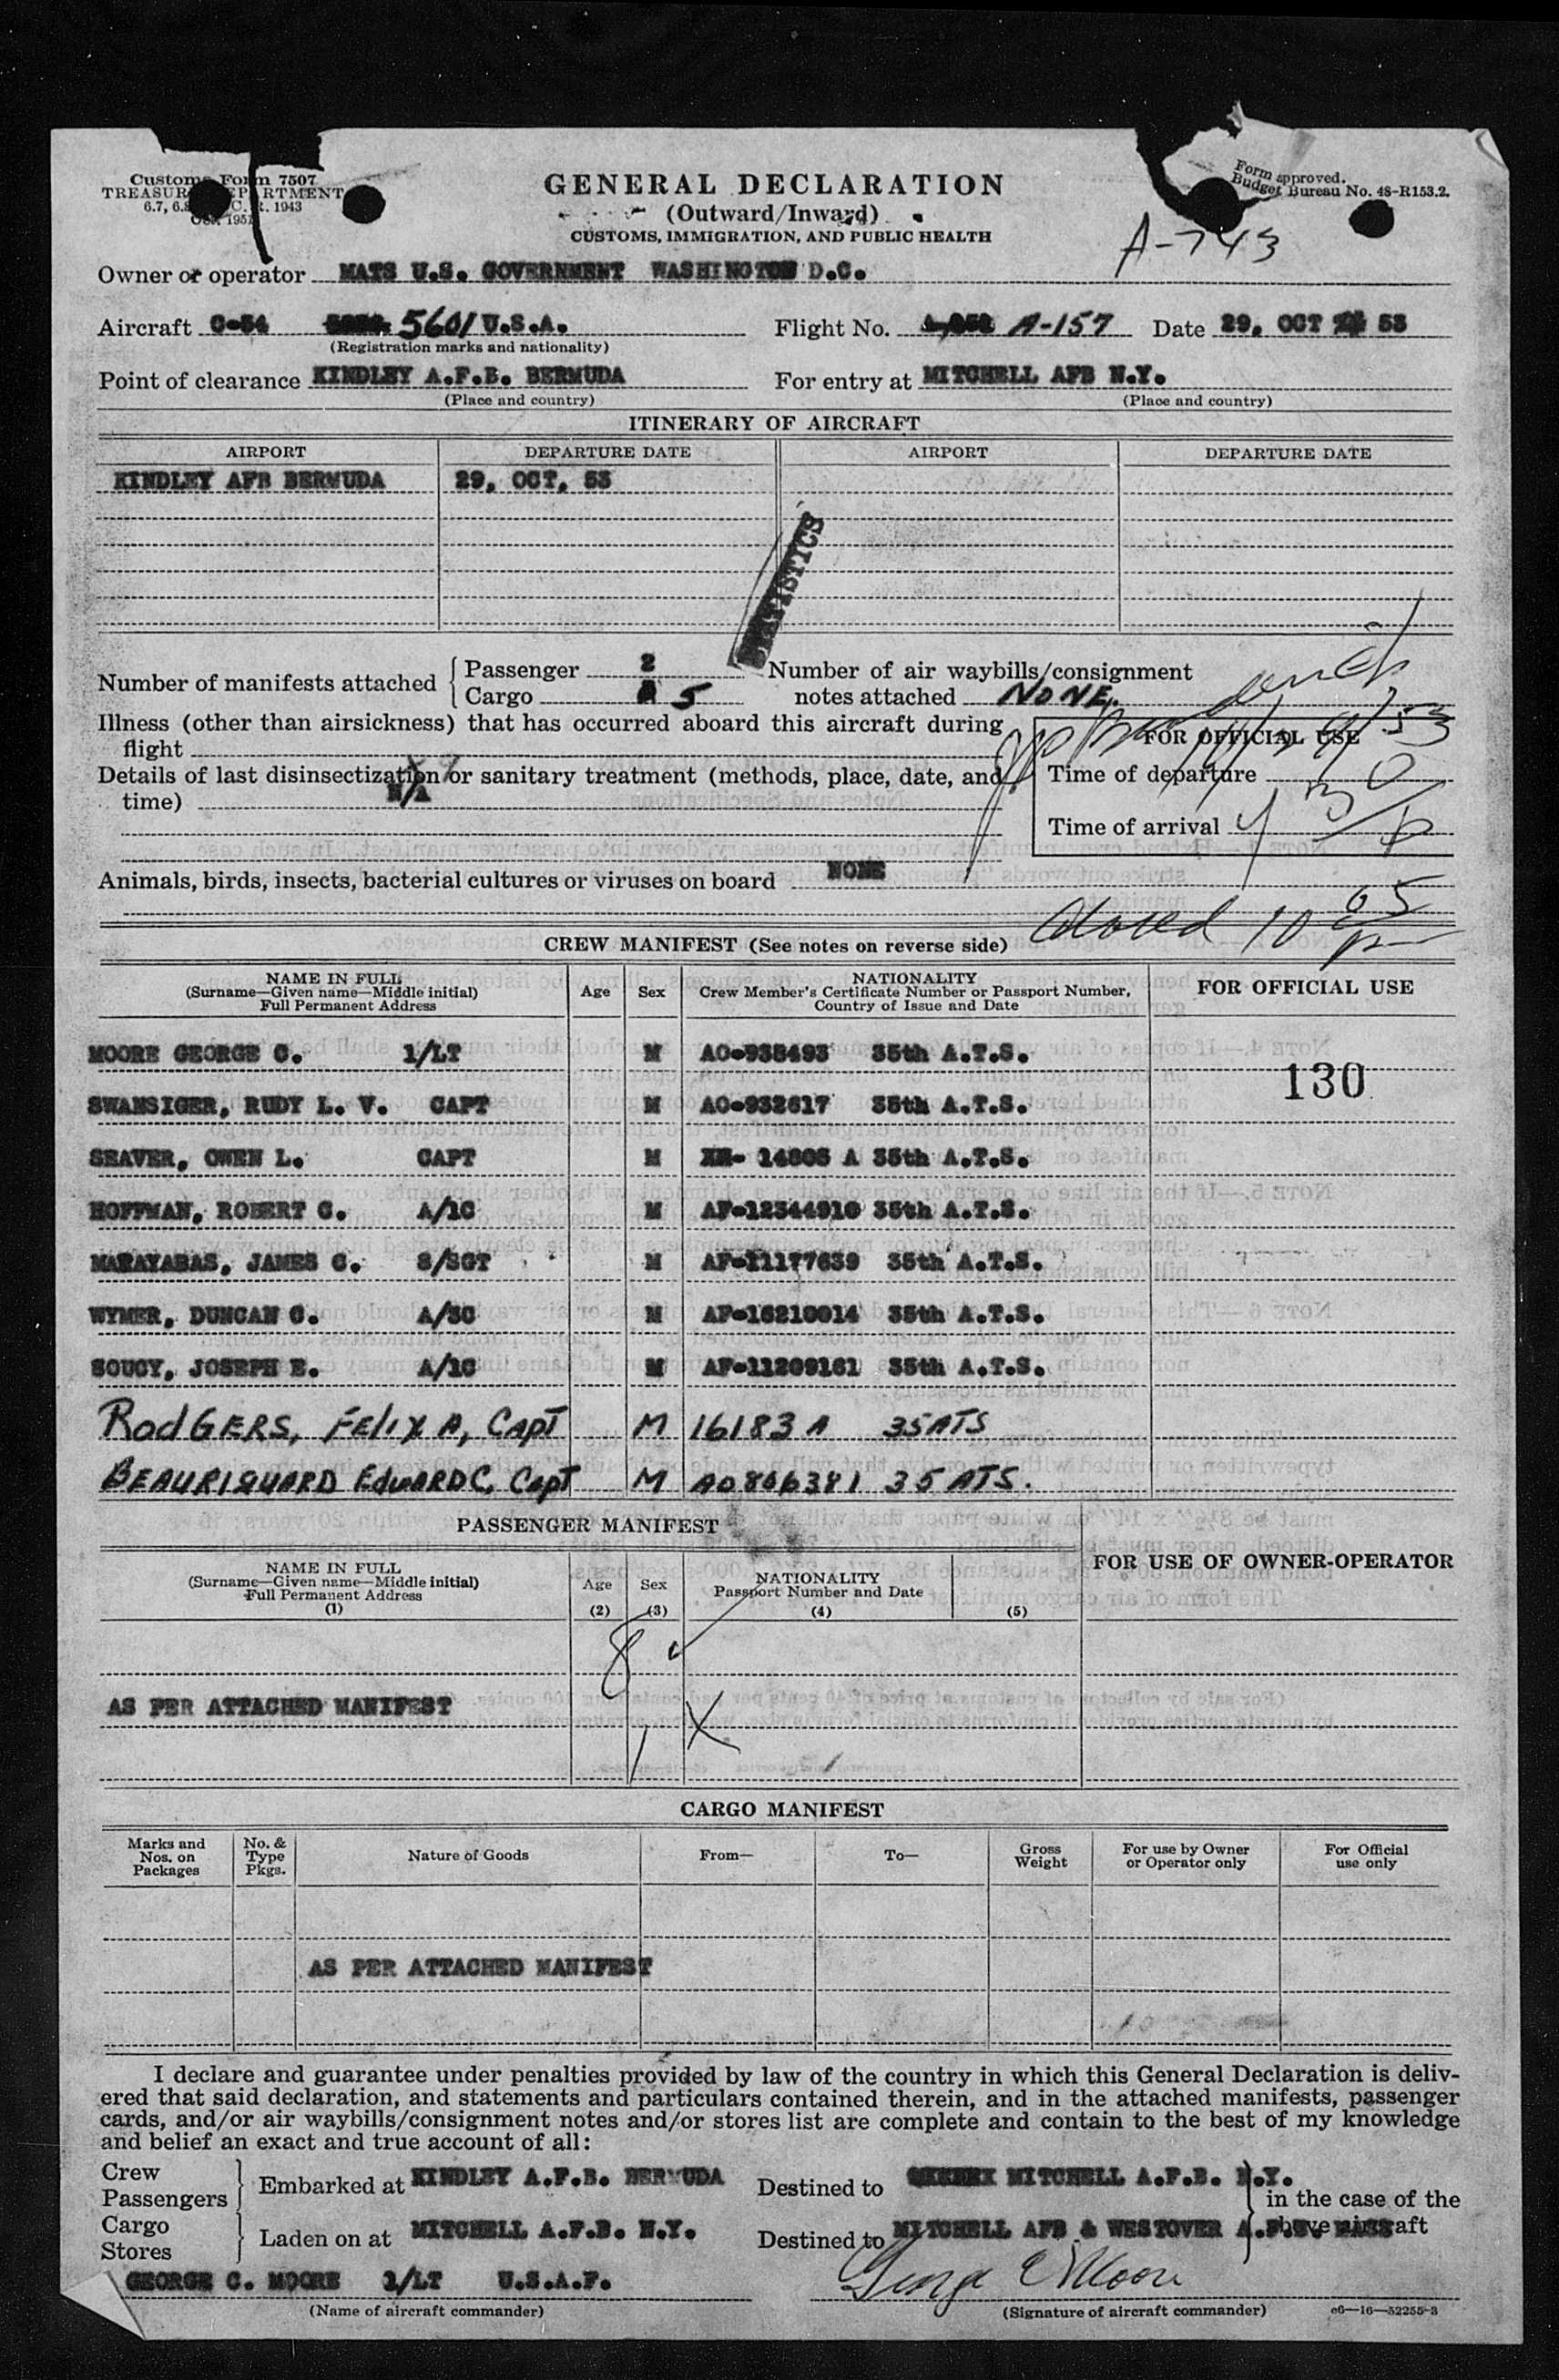 Customs Form 7507
TREASURY DEPARTMENT
1943
GENERAL DECLARATION
(Outward/Inward)
CUSTOMS, IMMIGRATION, AND PUBLIC HEALTH
Form approved.
Budget Bureau No. 48-R153.2.
A-743
Owner or operator MATS U.S. GOVERNMENT WASHINGTON D.C.
Aircraft C-54 5601 U.S.A. Flight No. A-157 Date 29, OCT 53
(Registration marks and nationality)
Point of clearance KINDLEY A.F.B. BERMUDA For entry at MITCHELL AFB N.Y.
(Place and country) (Place and country)
ITINERARY OF AIRCRAFT
AIRPORT DEPARTURE DATE AIRPORT DEPARTURE DATE
KINDLEY AFB BERMUDA 29, OCT, 53
STATISTICS
Number of manifests attached Passenger 2 Number of air waybills/consignment
Cargo 5 notes attached NONE.
Illness (other than airsickness) that has occurred aboard this aircraft during
flight
FOR OFFICIAL USE
Details of last disinsectization or sanitary treatment (methods, place, date, and
time) N/A
Time of departure
Time of arrival
Animals, birds, insects, bacterial cultures or viruses on board NONE
10 05
CREW MANIFEST (See notes on reverse side)
NAME IN FULL
(Surname—Given name—Middle initial)
Full Permanent Address
Age Sex
NATIONALITY
Crew Member's Certificate Number or Passport Number,
Country of Issue and Date
FOR OFFICIAL USE
MOORE GEORGE C. 1/LT M AO-938493 35th A.T.S.
130
SWANSIGER, RUDY L. V. CAPT M AO-932617 35th A.T.S.
SEAVER, OWEN L. CAPT M 14808 A 35th A.T.S.
HOFFMAN, ROBERT C. A/1C M AF-12344910 35th A.T.S.
MARAYABAS, JAMES C. S/SGT M AF-11177639 35th A.T.S.
WYMER, DUNCAN C. A/3C M AF-16210014 35th A.T.S.
SOUCY, JOSEPH E. A/1C M AF-11209161 35th A.T.S.
RodGERS, FELIX A, CAPT M 16183 A 35 ATS
BEAURIQUARD EdWARD C, CapT M AO806381 35 ATS.
PASSENGER MANIFEST
NAME IN FULL
(Surname—Given name—Middle initial)
Full Permanent Address
(1)
Age
(2)
Sex
(3)
NATIONALITY
Passport Number and Date
(4) (5)
FOR USE OF OWNER-OPERATOR
8
AS PER ATTACHED MANIFEST
1 X
CARGO MANIFEST
Marks and
Nos. on
Packages
No. &
Type
Pkgs.
Nature of Goods
From—
To—
Gross
Weight
For use by Owner
or Operator only
For Official
use only
AS PER ATTACHED MANIFEST
I declare and guarantee under penalties provided by law of the country in which this General Declaration is deliv-
ered that said declaration, and statements and particulars contained therein, and in the attached manifests, passenger
cards, and/or air waybills/consignment notes and/or stores list are complete and contain to the best of my knowledge
and belief an exact and true account of all:
Crew
Passengers Embarked at KINDLEY A.F.B. BERMUDA Destined to MITCHELL A.F.B. N.Y.
in the case of the
above aircraft
Cargo
Stores Laden on at MITCHELL A.F.B. N.Y. Destined to MITCHELL AFB & WESTOVER A.F.B. MASS
GEORGE C. MOORE 1/LT U.S.A.F. George C Moore
(Name of aircraft commander) (Signature of aircraft commander) c6—16—52255-3